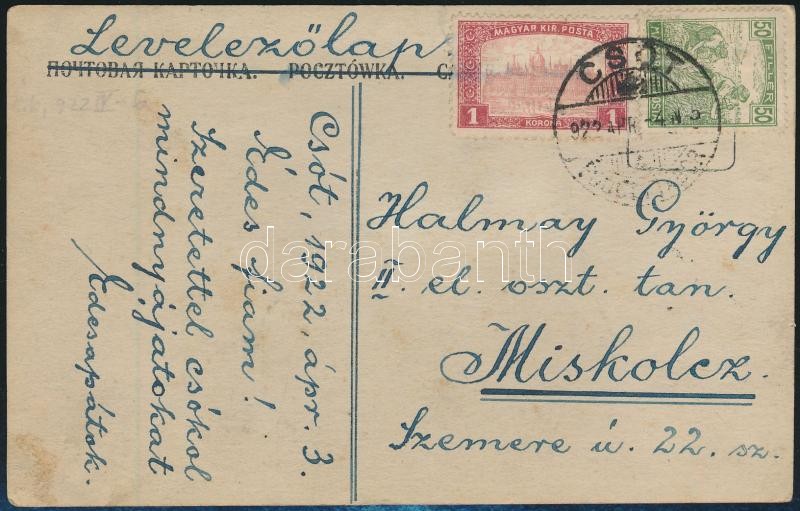 Levelezőlap
ПОЧТОВАЯ КАРТОЧКА. POCZTÓWKA.
MAGYAR KIR. POSTA
1 1
KORONA
50 FILLÉR 50
50
CSÓT
922 ÁPR. -4.
Csót, 1922, ápr. 3.
Édes fiam!
Szeretettel csókol
mindnyájatokat
Édesapátok.
Halmay György
II. el. oszt. tan.
Miskolcz.
Szemere ú. 22. sz.
darabanth